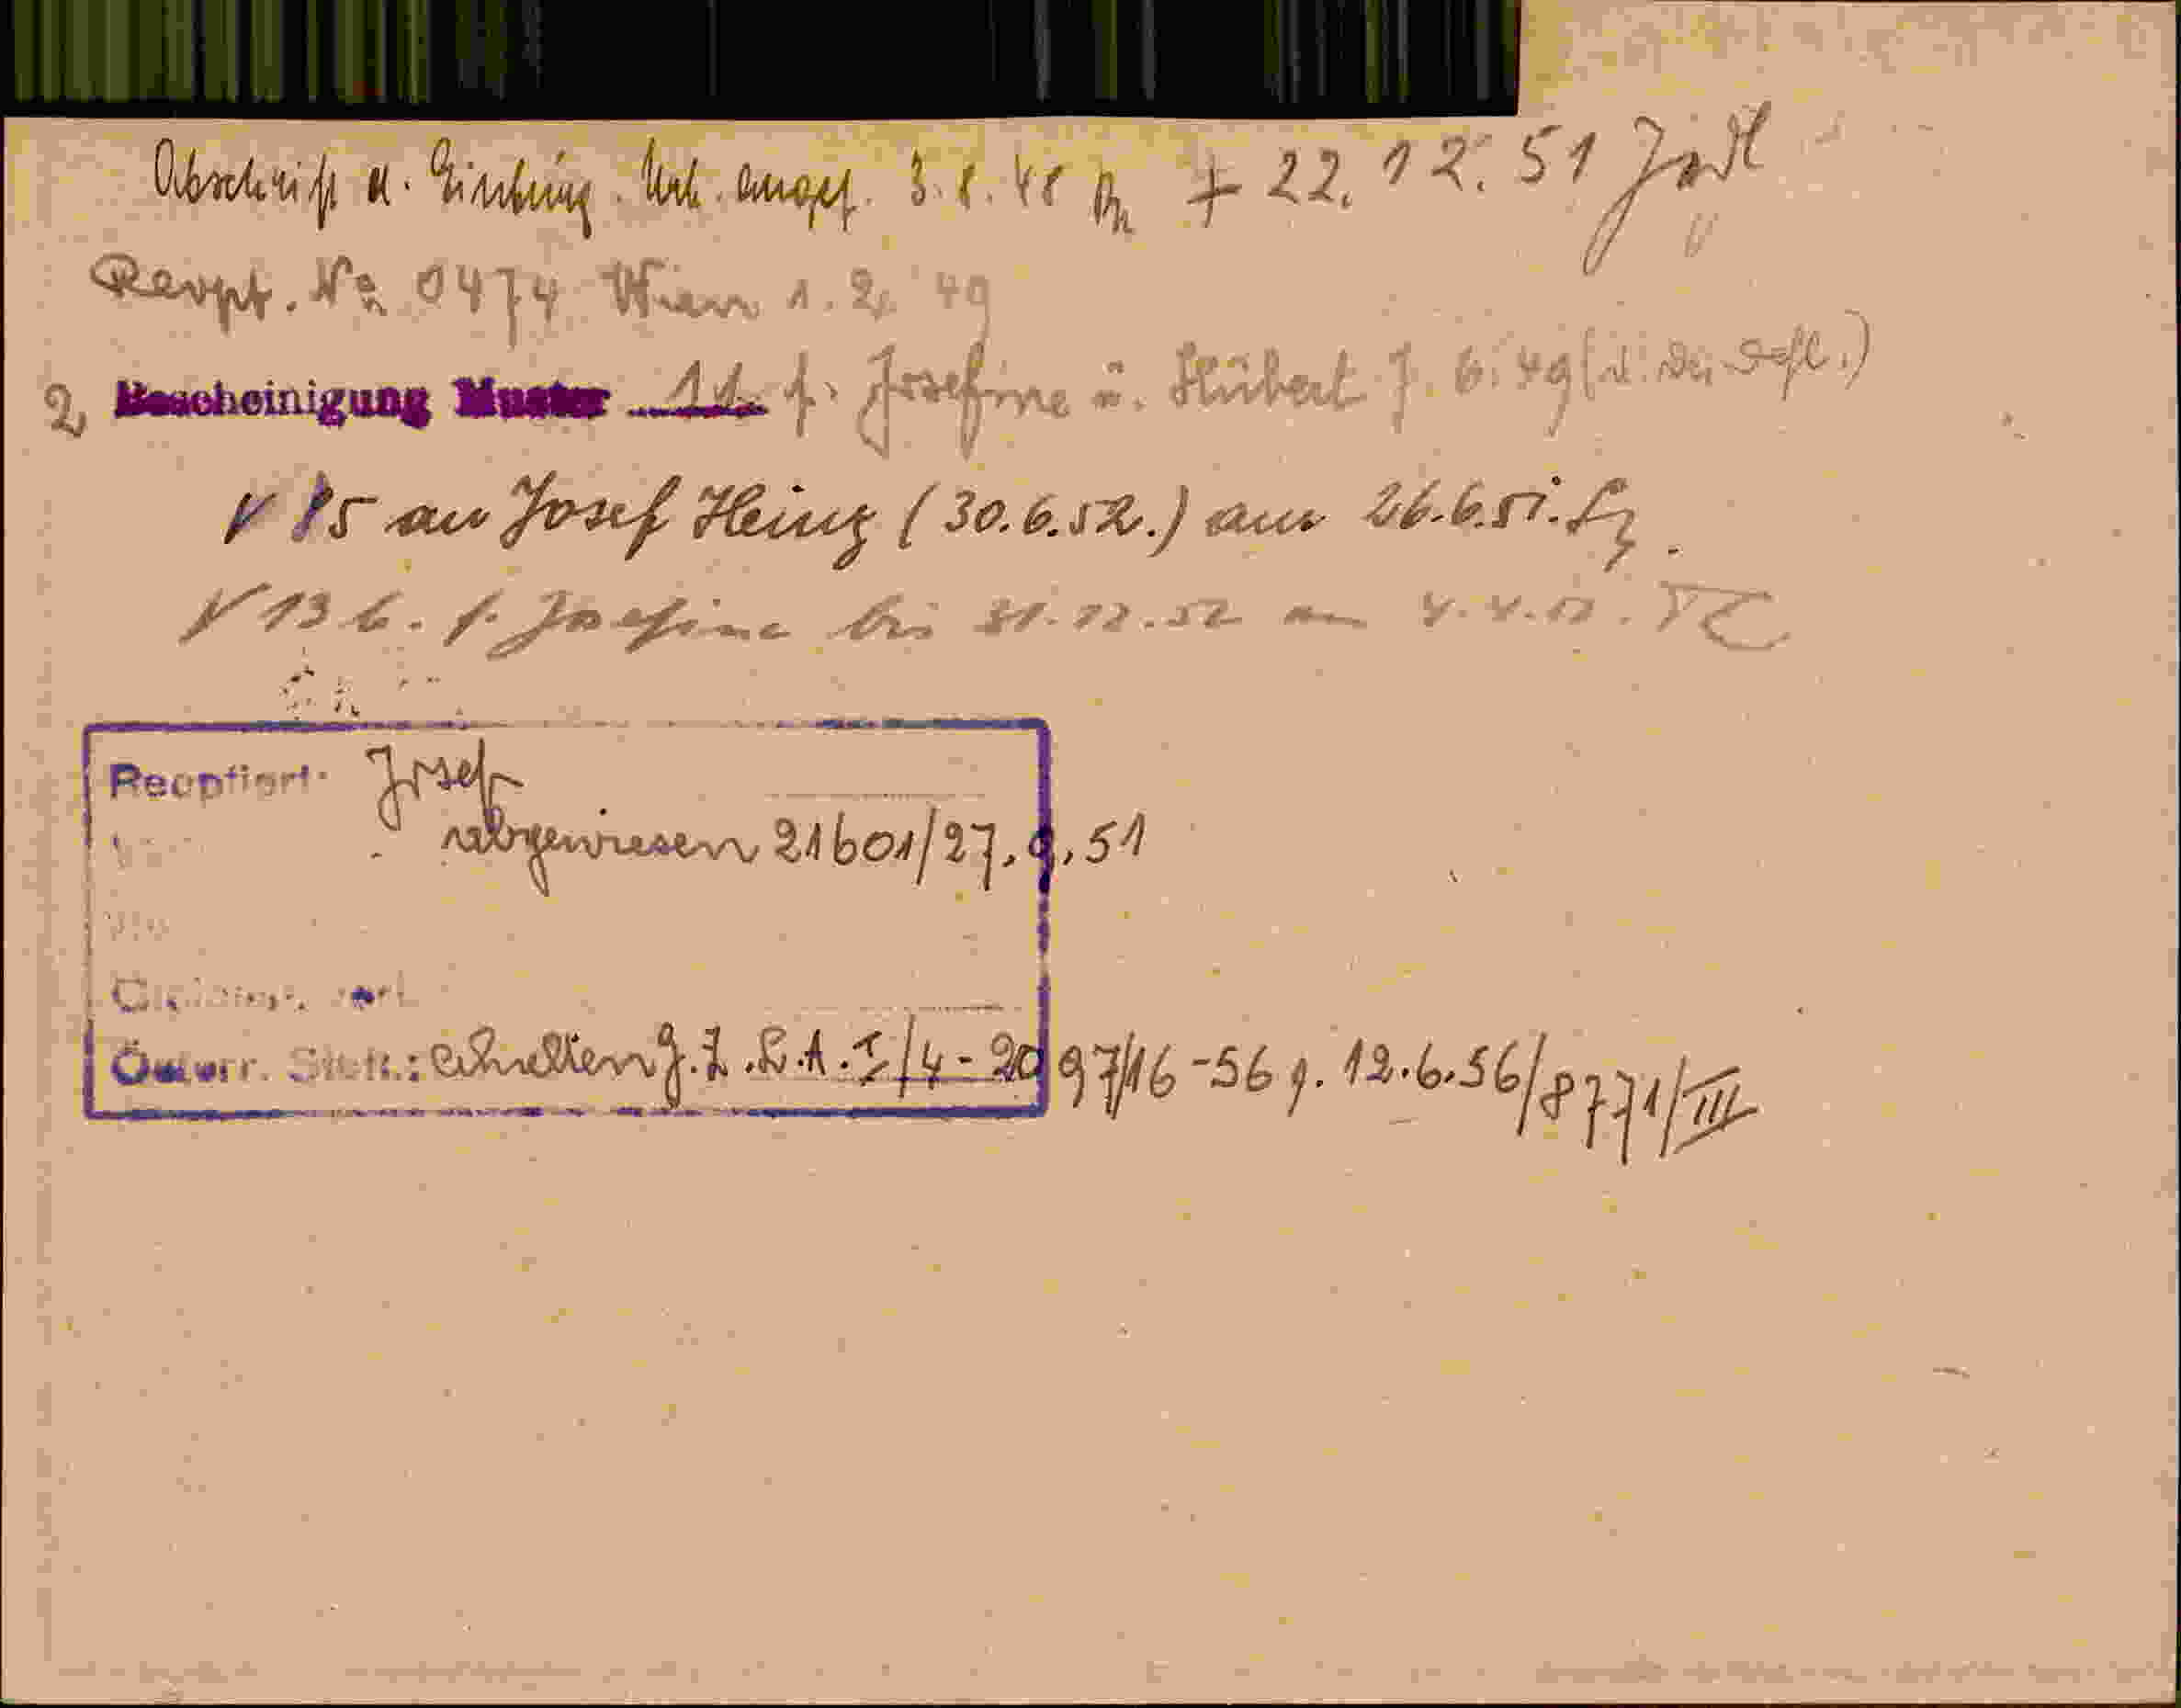 Abschrift d. Einbürg. Urk. ausgef. 3.8.48 + 22.12.51
Reopt. No 0474 Wien 1.2.49
2 Bescheinigung Muster 11 f. Josefine u. Hubert 7.6.49
V P5 an Josef Heinz (30.6.52.) am 26.6.51.
V 13 b. f. Josefine bis 31.12.52 am 4.4.52.
Reoptiert: Josef
abgewiesen 21601/27.9.51
Österr. Stcht.: erhalten g. Z. L.A. I/4-2097/16-56 v. 12.6.56/8771/III